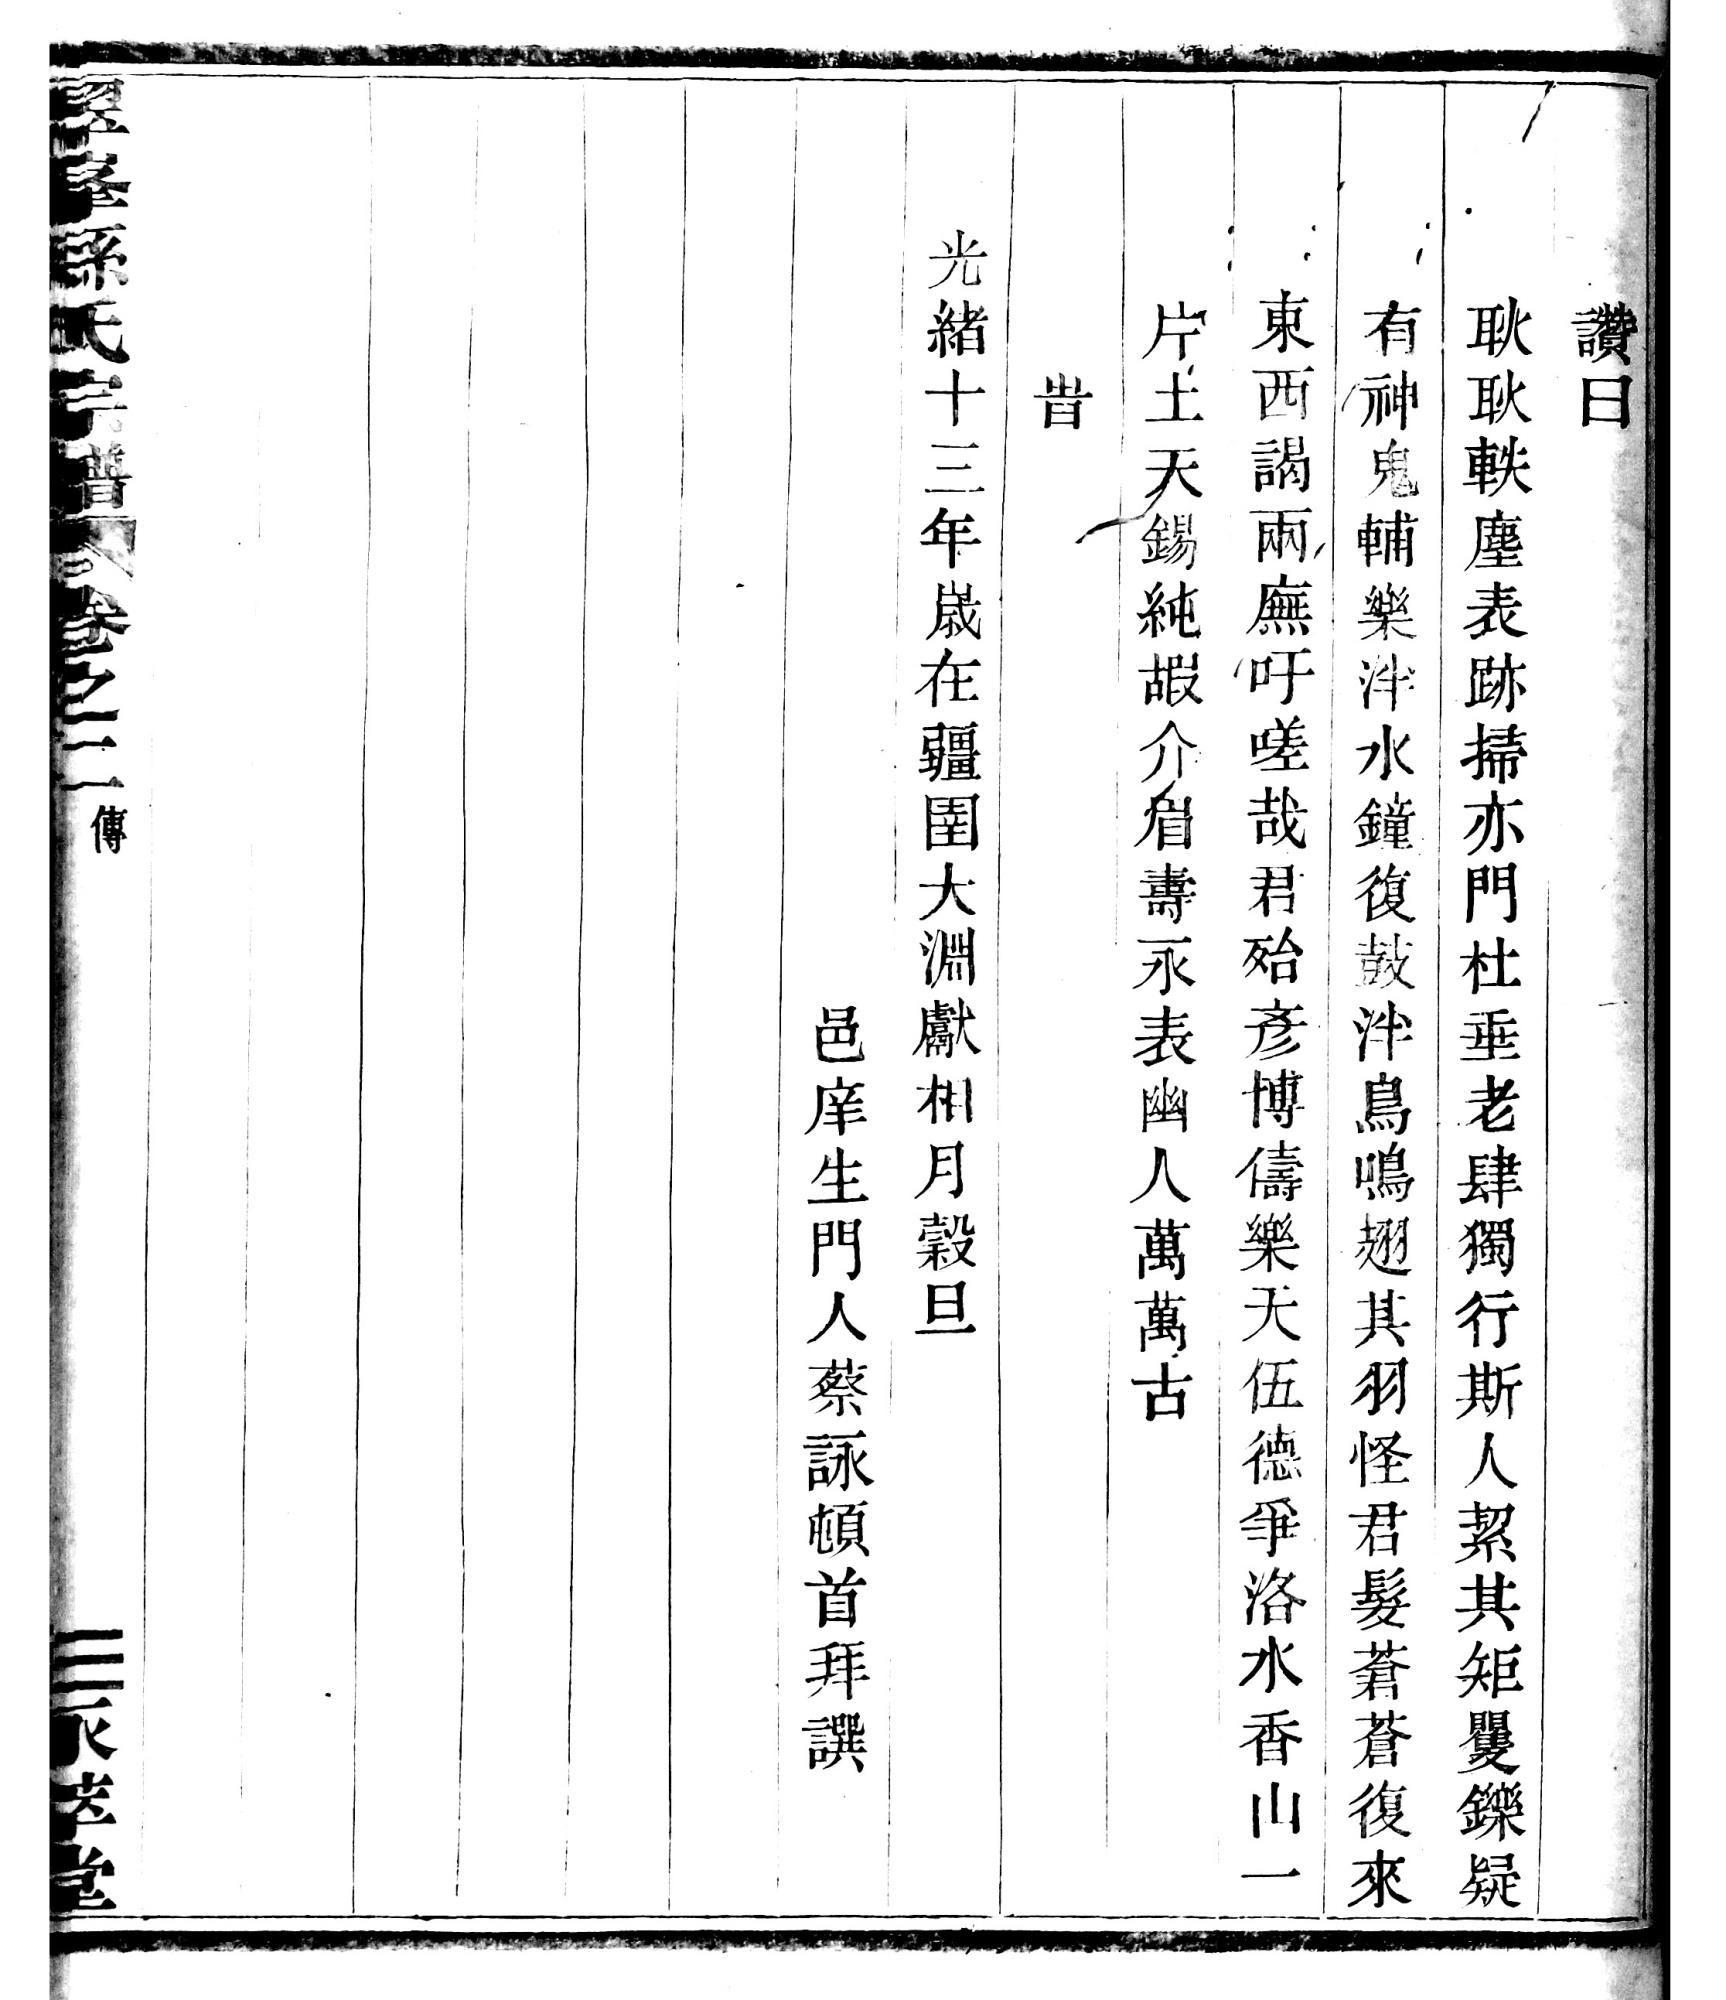 讚曰
耿耿軼塵表跡掃亦門杜垂老肆獨行斯人絜其矩矍鑠疑
有神鬼輔樂泮水鐘復鼓泮鳥鳴翅其羽怪君髮蒼蒼復來
東西謁兩廡吁嗟哉君殆彥博儔樂天伍德爭洛水香山一
片土天錫純嘏介眉壽永表幽人萬萬古
旹
光緒十三年歲在疆圉大淵獻相月穀旦
邑庠生門人蔡詠頓首拜譔
峯孫氏宗譜 卷之二 傳 二 永萃堂